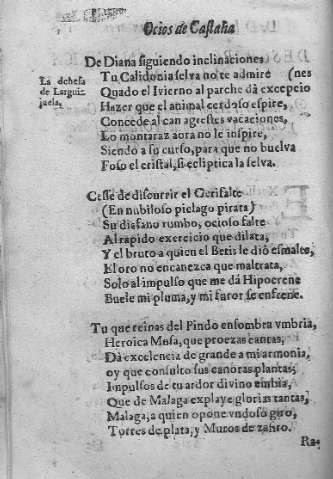 Ocios de Castaña
De Diana siguiendo inclinaciones
Tu Calidonia selva no te admire (nes
La dehesa
de Larguiz
juela.
Quãdo el Ivierno al parche dà excepcio
Hazer que el animal cerdoso espire,
Concede al can agrestes vacaciones,
Lo montaraz aora no le inspire,
Siendo a su curso, para que no buelva
Foso el cristal, si ecliptica la selva.
Cesse de discurrir el Gerifalte
(En nubiloso pielago pirata)
Su diafano rumbo, ocioso falte
Al rapido exercicio que dilata,
Y el bruto a quien el Betis le diò esmalte,
El oro no encanezca que maltrata,
Solo al impulso que me dá Hipocrene
Buele mi pluma, y mi furor se enfrene.
Tu que reinas del Pindo en sombra vmbria,
Heroica Musa, que proezas cantas,
Dà excelencia de grande a mi armonia,
oy que consulto sus canoras plantas;
Impulsos de tu ardor divino embia,
Que de Malaga explaye glorias tantas,
Malaga, a quien opone vndoso giro,
Torres de plata, y Muros de zafiro.
Ra-